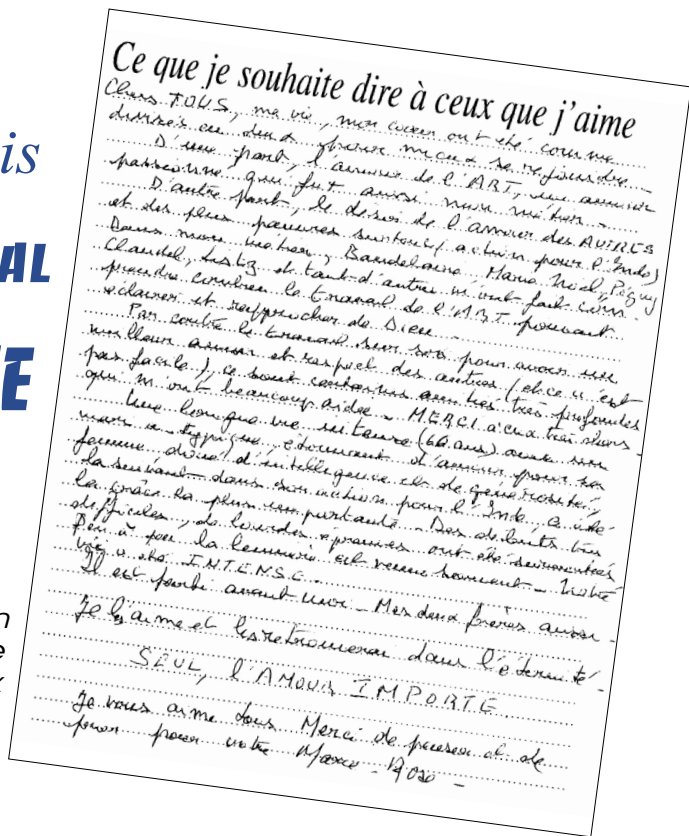 is
AL
E
n
e
x
Ce que je souhaite dire à ceux que j'aime
Chers TOUS, ma vie, mon coeur ont été comme
divisés en deux pour mieux se rejoindre
D'une part, l'amour de l'ART, une amour
passionné, qui fut aussi mon métier -
D'autre part, le désir de l'amour des AUTRES
et des plus pauvres surtout (action pour l'Inde)
Dans mon métier, Baudelaire, Marie Noël, Péguy
Claudel, Listz et tant d'autres m'ont fait com-
prendre combien le travail de l'ART pouvait
éclairer et rapprocher de Dieu -
Par contre le travail sur soi pour avoir un
meilleur amour et respect des autres (et ce n'est
pas facile), ce sont certaines amitiés très profondes
qui m'ont beaucoup aidée - MERCI à ceux très chers -
Une longue vie intense (60 ans) avec mon
mari - atypique, étonnant d'amour pour sa
femme, doué d'intelligence et de générosité,
la suivant dans son action pour l'Inde, a été
la grâce la plus importante - Des débuts très
difficiles, de lourdes épreuves ont été surmontées
Peu à peu la lumière est venue souvent - Notre
vie a été INTENSE.
Il est parti avant moi - Mes deux frères aussi -
Je les aime et les retrouverai dans l'éternité -
SEUL, l'AMOUR IMPORTE.
Je vous aime tous Merci de penser et de
prier pour votre Marie-Rose -